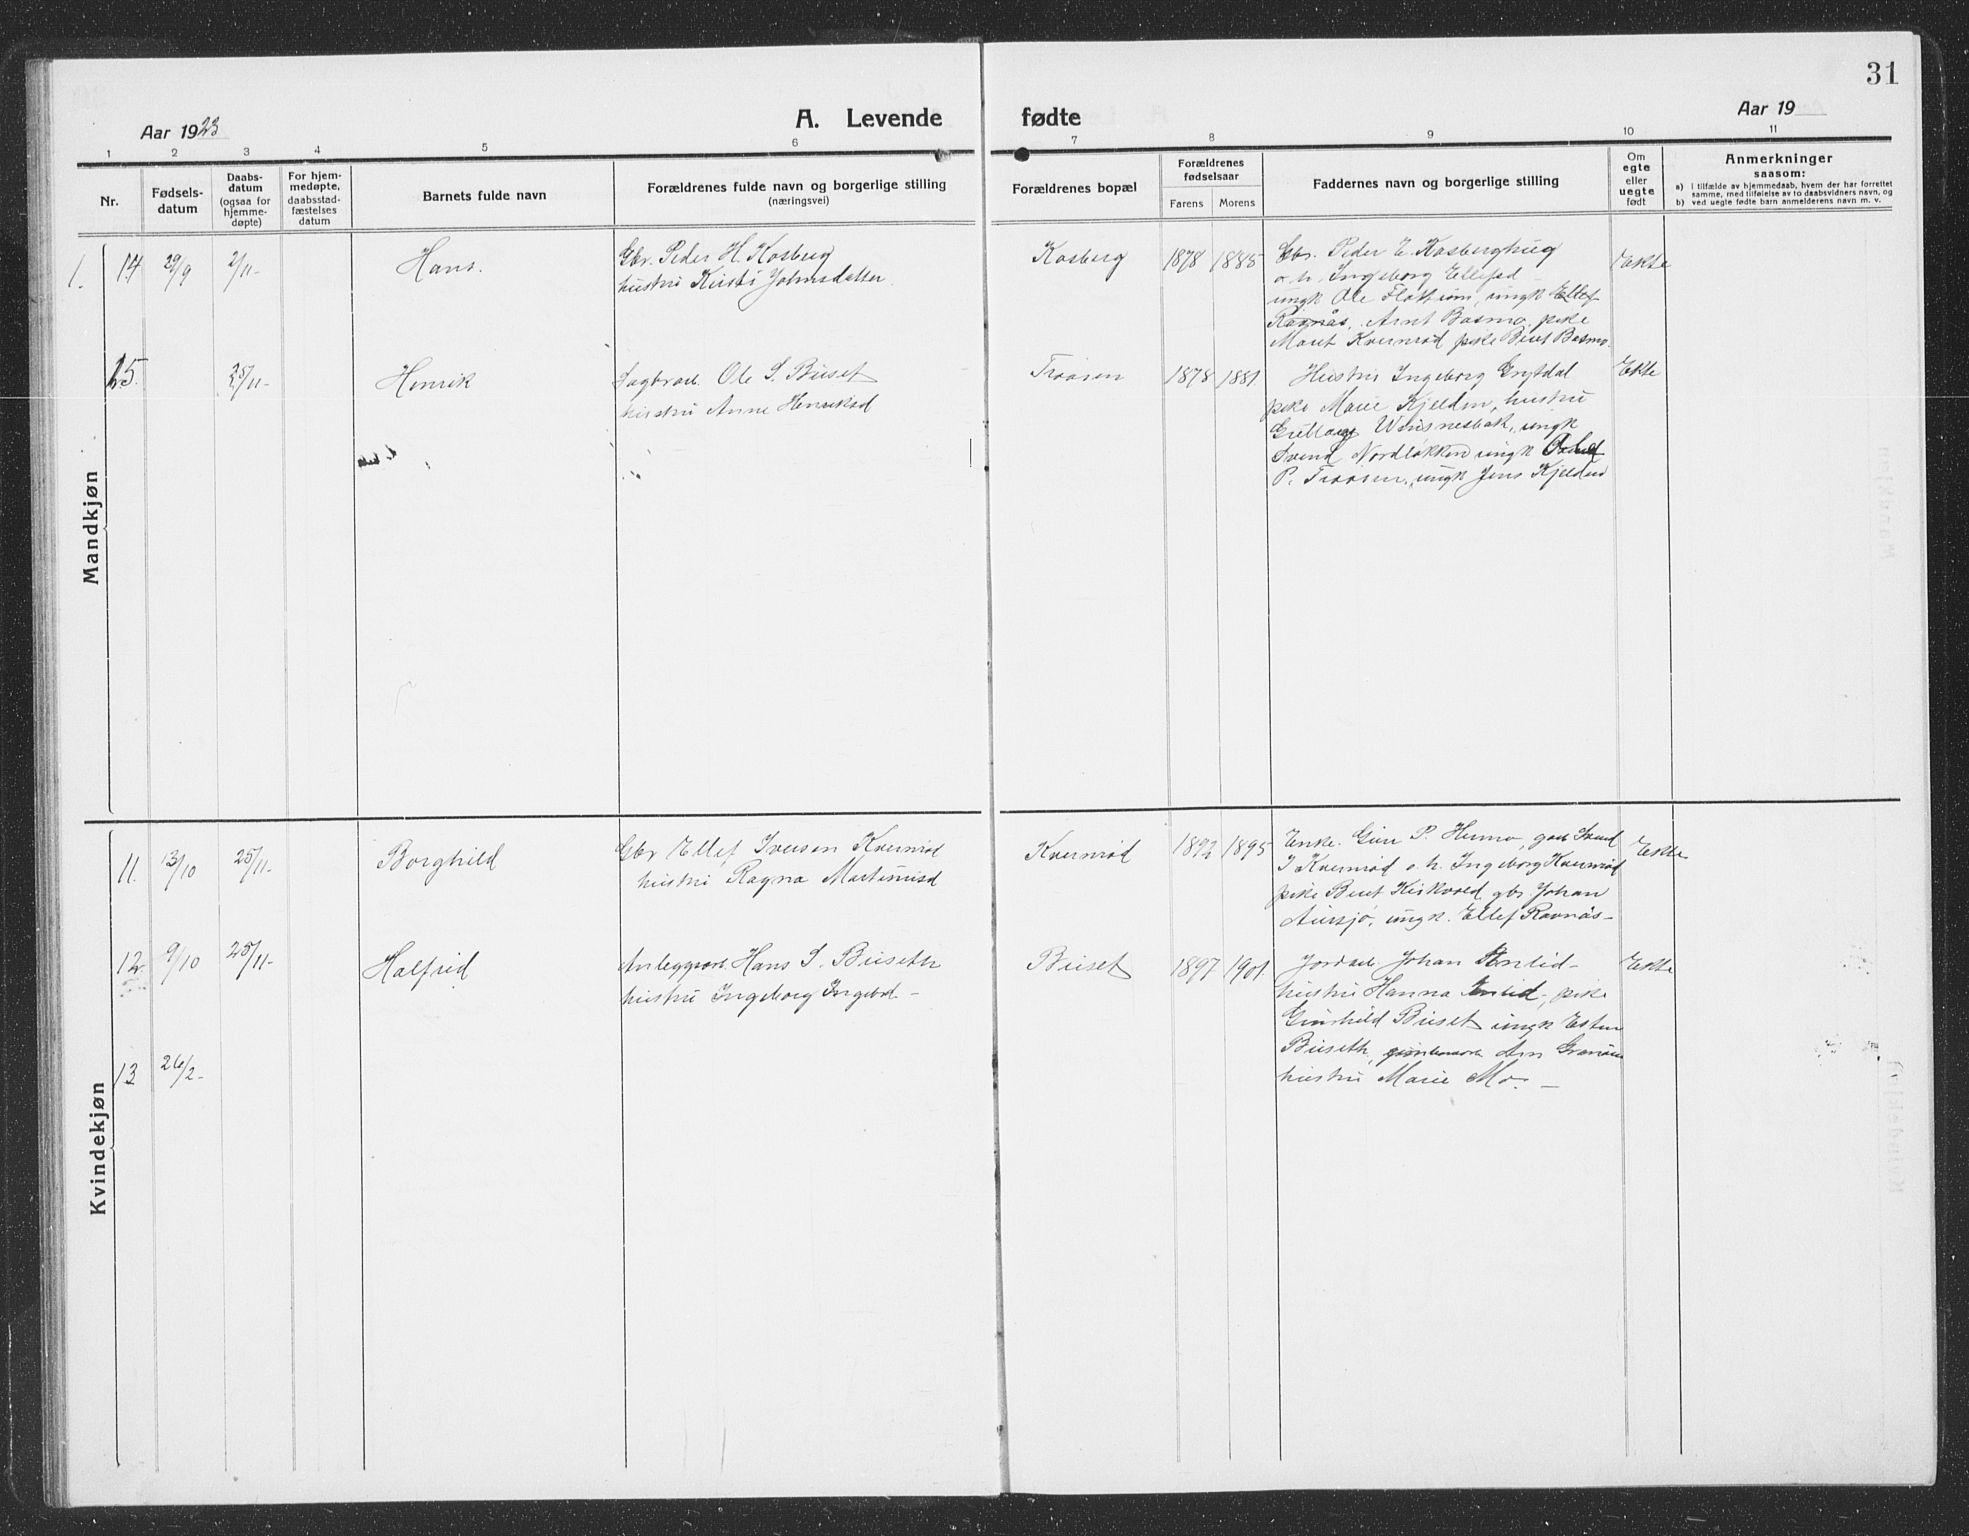 31
Aar 1923
A. Levende fødte
Aar 19
1 2 3 4 5 6 7 8 9 10 11
Nr.
Fødsels-
datum
Daabs-
datum
(ogsaa for
hjemme-
døpte)
For hjem-
medøpte,
daabsstad-
fæstelses
datum
Barnets fulde navn
Forældrenes fulde navn og borgerlige stilling
(næringsvei)
Forældrenes bopæl
Forældrenes
fødselsaar
Farens Morens
Faddernes navn og borgerlige stilling
Om
egte
eller
uegte
født
Anmerkninger
saasom:
a) i tilfælde av hjemmedaab, hvem der har forrettet
samme, med tilføielse av to daabsvidners navn, og
b) ved uegte fødte barn anmelderens navn m. v.
Mandkjøn
1. 14 29/9 2/11- Hans.
Gbr. Peder H. Kosberg
hustru Kirsti Johnsdatter
Kosberg 1878 1885
Gbr. Peder E. Kosberghug
o. h. Ingeborg Ellefsd -
ungk Ole Flottum, ungk Ellef
Ravnås, Arnt Bosmo, pike
Marit Kvernrød pike Beret Bosmo.
Ekte
15. 25/11- Henrik
Sagbrarb. Ole S. Buset
hustru Anne Henriksd
Troøien 1878 1881
Hustru Ingeborg Grytdal
pike Marie Kjelden, hustru
ungk
Svend Nordløkken ungk
P. Troøien, ungk Jens Kjelden
Ekte
Kvindekjøn
11. 13/10 25/11- Borghild
Gbr Ellef Iversen Kvernrød
hustru Ragna Martinusd
Kvernrød 1892 1895
Enke. Guru P. Humo, Svend
I Kvernrød o. h. Ingeborg Kvernrød
pike Beret Kirkvold gbr Johan
Aursjo, ungk. Ellef Ravnås-
Ekte
12. 9/10 25/11- Halfrid
Anleggsarb. Hans S. Buseth
hustru Ingeborg Ingebrd. -
Buset 1897 1901.
Jordarb. Johan Enlid-
hustru Hanna Enlid-, pike
Gunhild Buset ungk Esten
Buseth, Arn
hustru Marie Mo. -
Ekte
13 26/2-